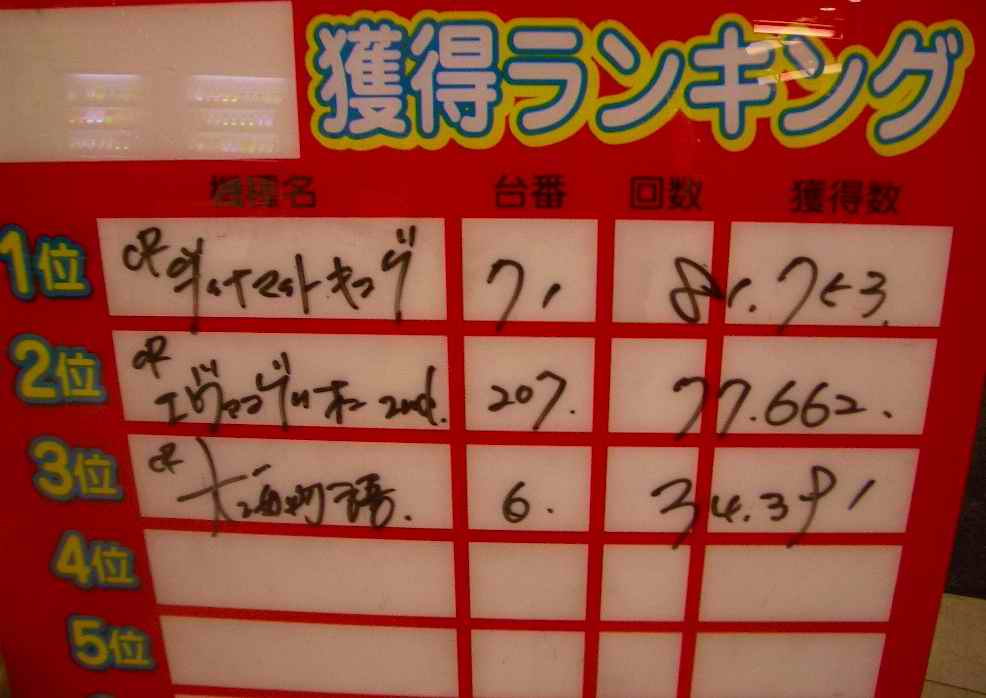 獲得ランキング
機種名 台番 回数 獲得数
1位 CR 71
2位 CR エヴァンゲリオン 2nd. 207. 77.662.
3位 CR 大海物語. 6. 34.391
4位
5位